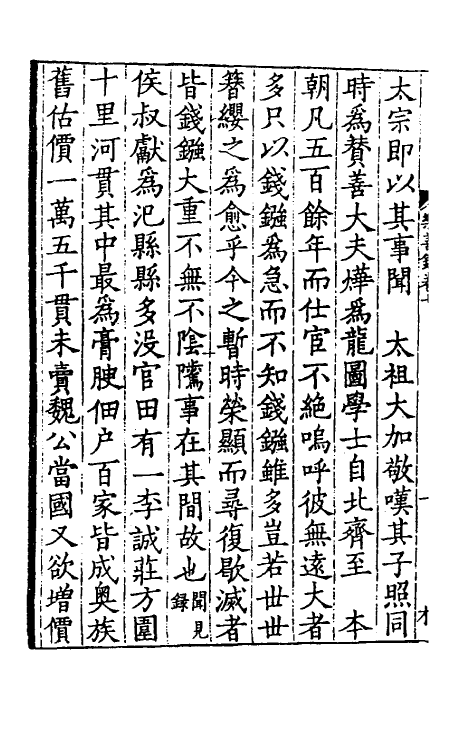 太宗即以其事聞　太祖大加敬嘆其子照同
時爲賛善大夫燁爲龍圖學士自北齊至　本
朝凡五百餘年而仕宦不絶嗚呼彼無遠大者
多只以錢鏹爲急而不知錢鏹雖多豈若世世
簪纓之爲愈乎今之暫時榮顯而尋復歇滅者
皆錢鏹大重不無不陰隲事在其間故也聞見録
侯叔獻爲汜縣縣多没官田有一李誠莊方圍
十里河貫其中最爲膏腴佃户百家皆成奥族
舊估價一萬五千貫未賣魏公當國又欲增價